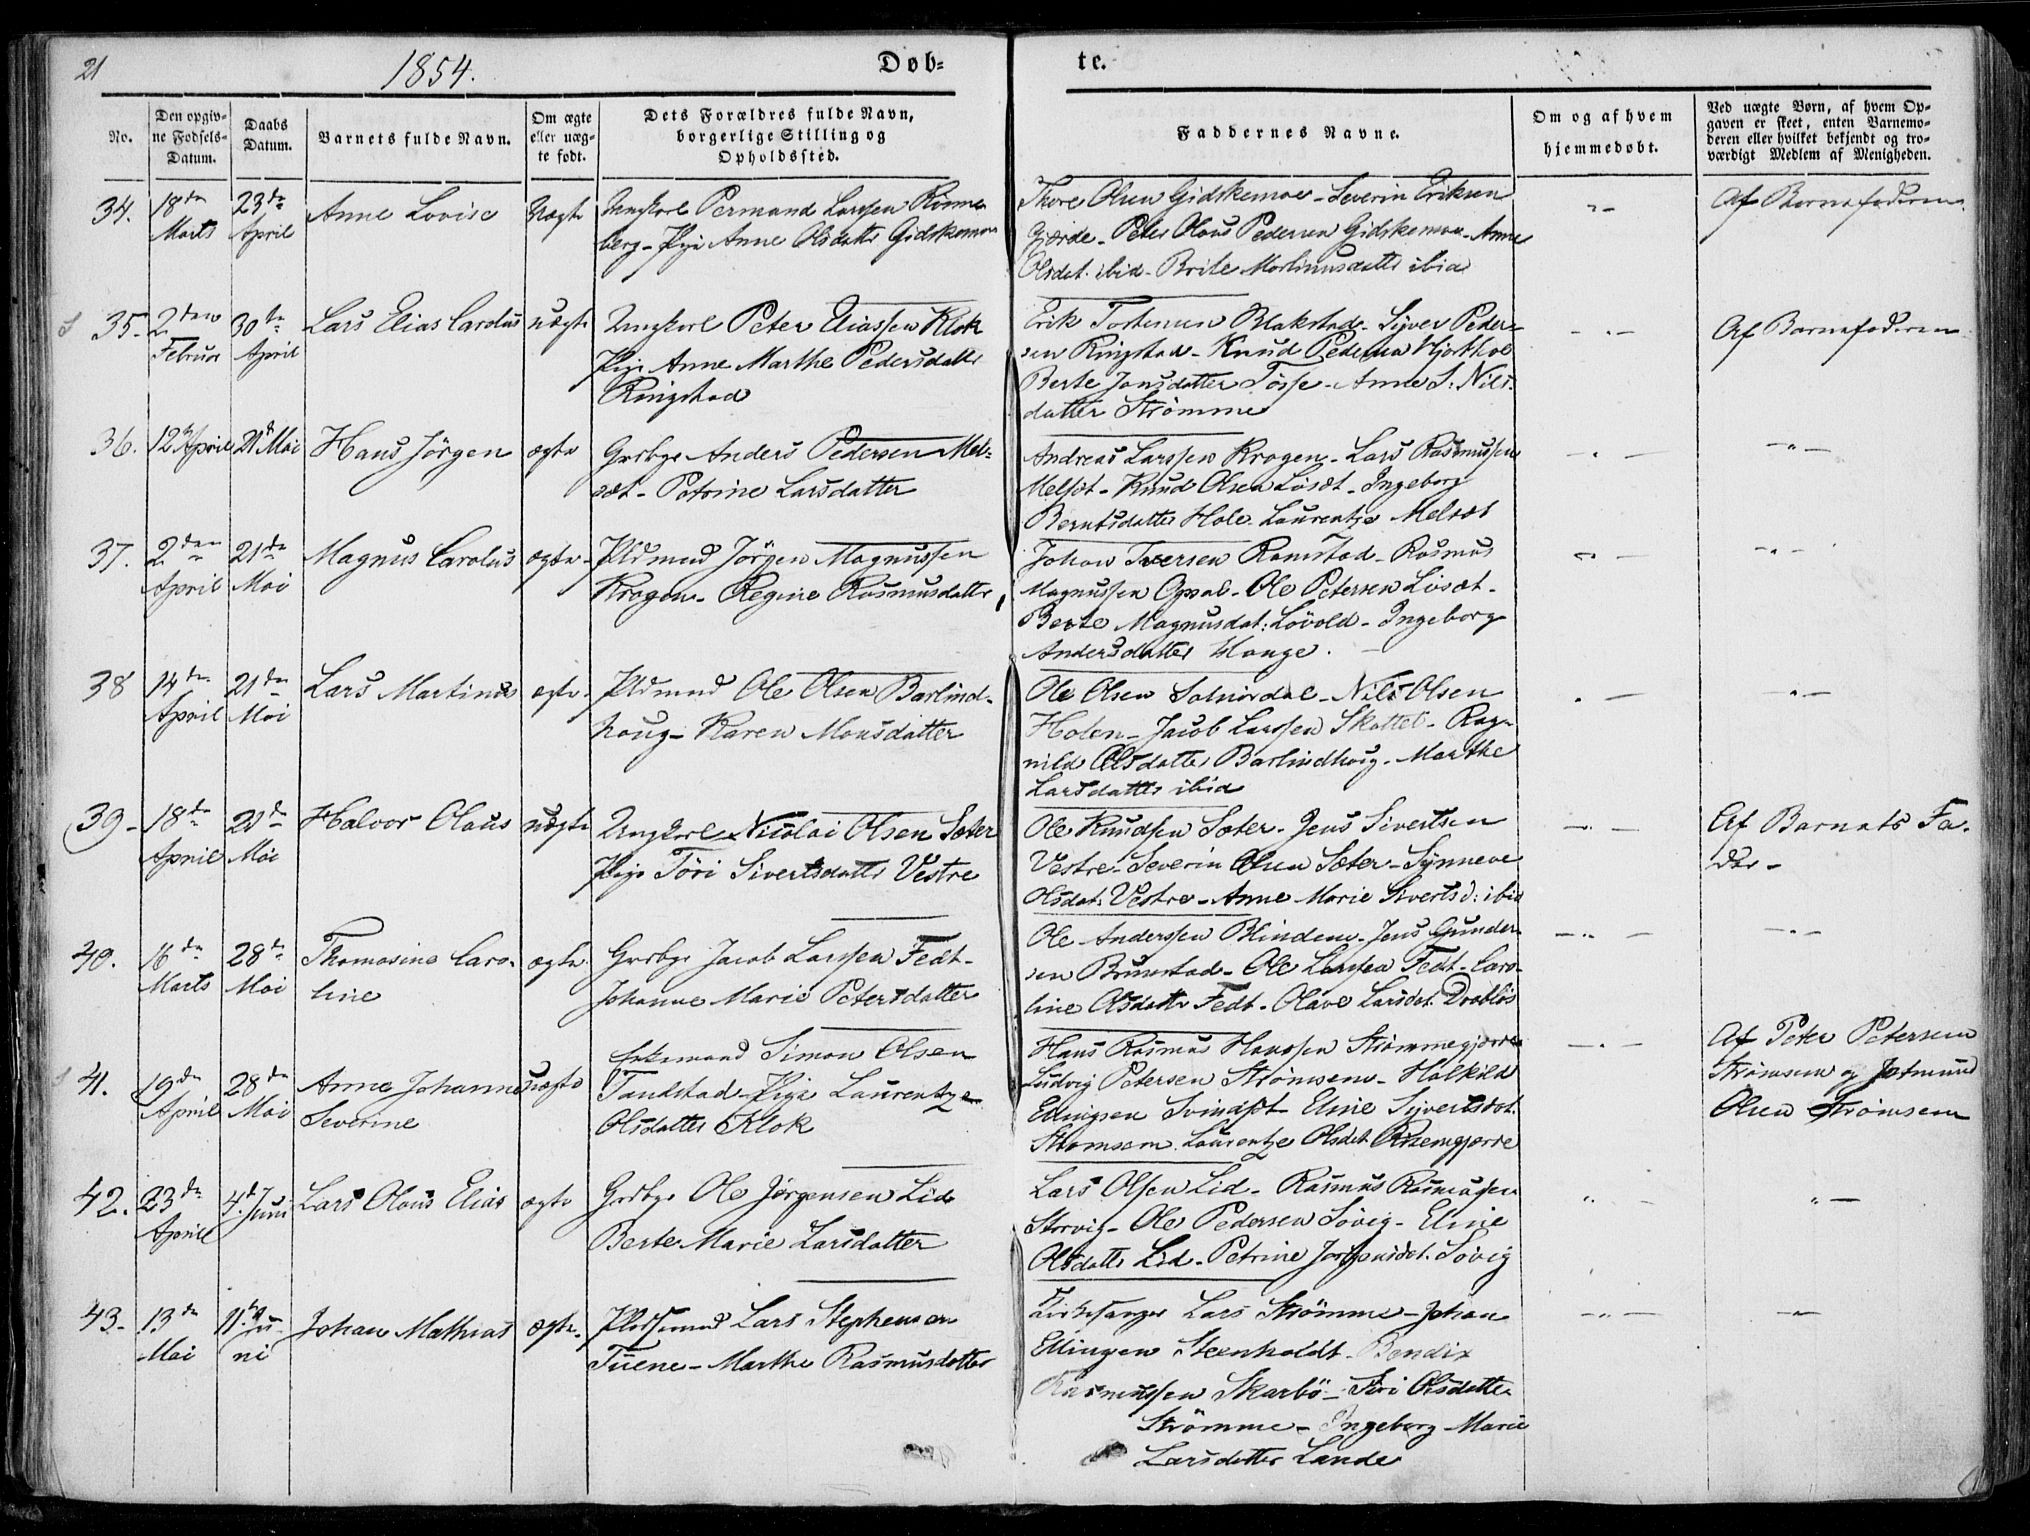 21
1854.
Døb-
te.
No.
Den opgiv-
ne Fødsels-
Datum.
Daabs
Datum.
Barnets fulde Navn.
Om ægte
eller uæg-
te født.
Dets Forældres fulde Navn,
borgerlige Stilling og
Opholdssted.
Faddernes Navne.
Om og af hvem
hjemmedøbt.
Ved uægte Børn, af hvem Op-
gaven er skeet, enten Barnemo-
deren eller hvilket bekjendt og tro-
værdigt Medlem af Menigheden.
34.
18de
Marts
23de
April
Anne Lovise
Uægte
Ungkarl Permand Larssen Rinne
berg - Pige Anne Olsdatter Gidskemoe
Thore Olsen Gidskemoe - Severin Eriksen
Gjærde - Peter Olaus Pedersen Gidskemoe - Anne
Olsdat. ibid - Brite Martinusdatter ibid
" -
Af Barnefaderen
35.
2den
Februar
30te
April
Lars Elias Carolus
uægte
Ungkarl Peter Eliassen Klok
Pige Anne Marthe Pedersdatter
Ringstad
Erik Torstensen Blakstad - Syver Peder-
sen Ringstad - Knud Pedersen Hjorthol
Berte Jonsdatter Tosse - Anne S. Nils-
datter Strømme
- " -
Af Barnefaderen
36.
12te April
21de Mai
Hans Jörgen
ægte
Grbgr Anders Pedersen Mel-
sæt - Petrine Larsdatter
Andreas Larssen Krogen - Lars Rasmussen
Melsæt - Knud Olsen Løsæt - Ingeborg
Berntsdatter Hole - Laurentze Melsæt
- " -
- " -
37.
2den
April
21de
Mai
Magnus Carolus
ægte
Pldsmnd Jörgen Magnussen
Krogen - Regine Rasmusdatter
Johan Iversen Ramstad - Rasmus
Magnussen Opsal - Ole Petersen Løsæt -
Berte Magnusdat: Løvold - Ingeborg
Andersdatter Hauge.
" -
- " -
38
14de
April
21de
Mai
Lars Martinus
ægte
Pldsmnd Ole Olsen Barlind-
houg - Karen Monsdatter
Ole Olsen Solnørdal - Nils Olsen
Holen - Jacob Larssen Skottet - Rag-
nild Olsdatter Barlindhoug - Marthe
Larsdatter ibid
" -
" -
39 -
18de
April
21de
Mai
Halvor Olaus
uægte
Ungkarl Nicolai Olsen Sæter
Pige Töri Sivertsdatter Vestre
Ole Knudsen Sæter - Jens Sivertsen
Vestre - Severin Olsen Sæter - Synneve
Olsdat: Vestre - Anne Marie Sivertsd: ibid
- " -
Af Barnets Fa-
der -
40.
16de
Marts
28de
Mai
Thomasine Caro-
line
ægte
Grbgr Jacob Larssen Fedt -
Johanne Marie Petersdatter
Ole Anderssen Blindem - Jens Gunder-
sen Brunstad - Ole Larssen Fedt - Caro-
line Olsdatter Fedt - Olave Larsdat. Drabløs
- " -
- " -
41.
19de
April
28de
Mai
Anne Johanne
Severine
uægte
Enkemand Simon Olsen
Tandstad - Pige Laurentze
Olsdatter Klok
Hans Rasmus Hanssen Strømmegjærde
Ludvig Petersen Strømsem - Halkild
Edingsen Svindset - Eline Syvertsdat.
Strømsem Laurentze Olsdat
- " -
Af Peter Petersen
Strømsem og Jetmund
Olsen Strømsem
42.
23de
April
4de Juni
Lars Olaus Elias
ægte
Grdbgr Ole Jørgensen Lid
Berte Marie Larsdatter
Lars Olsen Lid - Rasmus Rasmussen
Storvig - Ole Pedersen Søvig - Eline
Olsdatter Lid - Petrine Jørgensdat. Søvig
" -
" -
43.
13de
Mai
11te Ju-
ni
Johan Mathias
ægte.
Pldsmnd Lars Stephensen
Tuene - Marthe Rasmusdatter
Kirkesanger Lars Strømme - Johan
Ellingsen Steenholdt - Bendix
Rasmussen Skarbö - Siri Olsdatter
Strömme - Ingeborg Marie
Larsdatter Lande
- " -
- " -